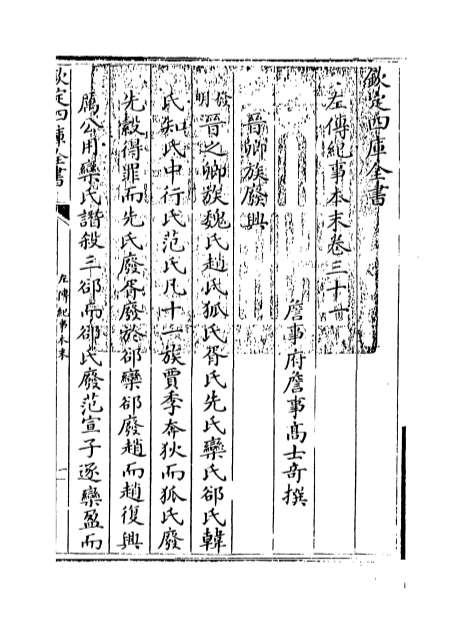 欽定四庫全書
左傳紀事本末卷三十一
詹事府詹事高士奇撰
晉卿族廢興
發明
晉之卿族魏氏趙氏狐氏胥氏先氏欒氏郤氏韓
氏知氏中行氏范氏凡十一族賈季奔狄而狐氏廢
先縠得罪而先氏廢胥廢於郤欒郤廢趙而趙復興
厲公用欒氏譖殺三郤而郤氏廢范宣子逐欒盈而
欽定四庫全書
左傳紀事本末
一